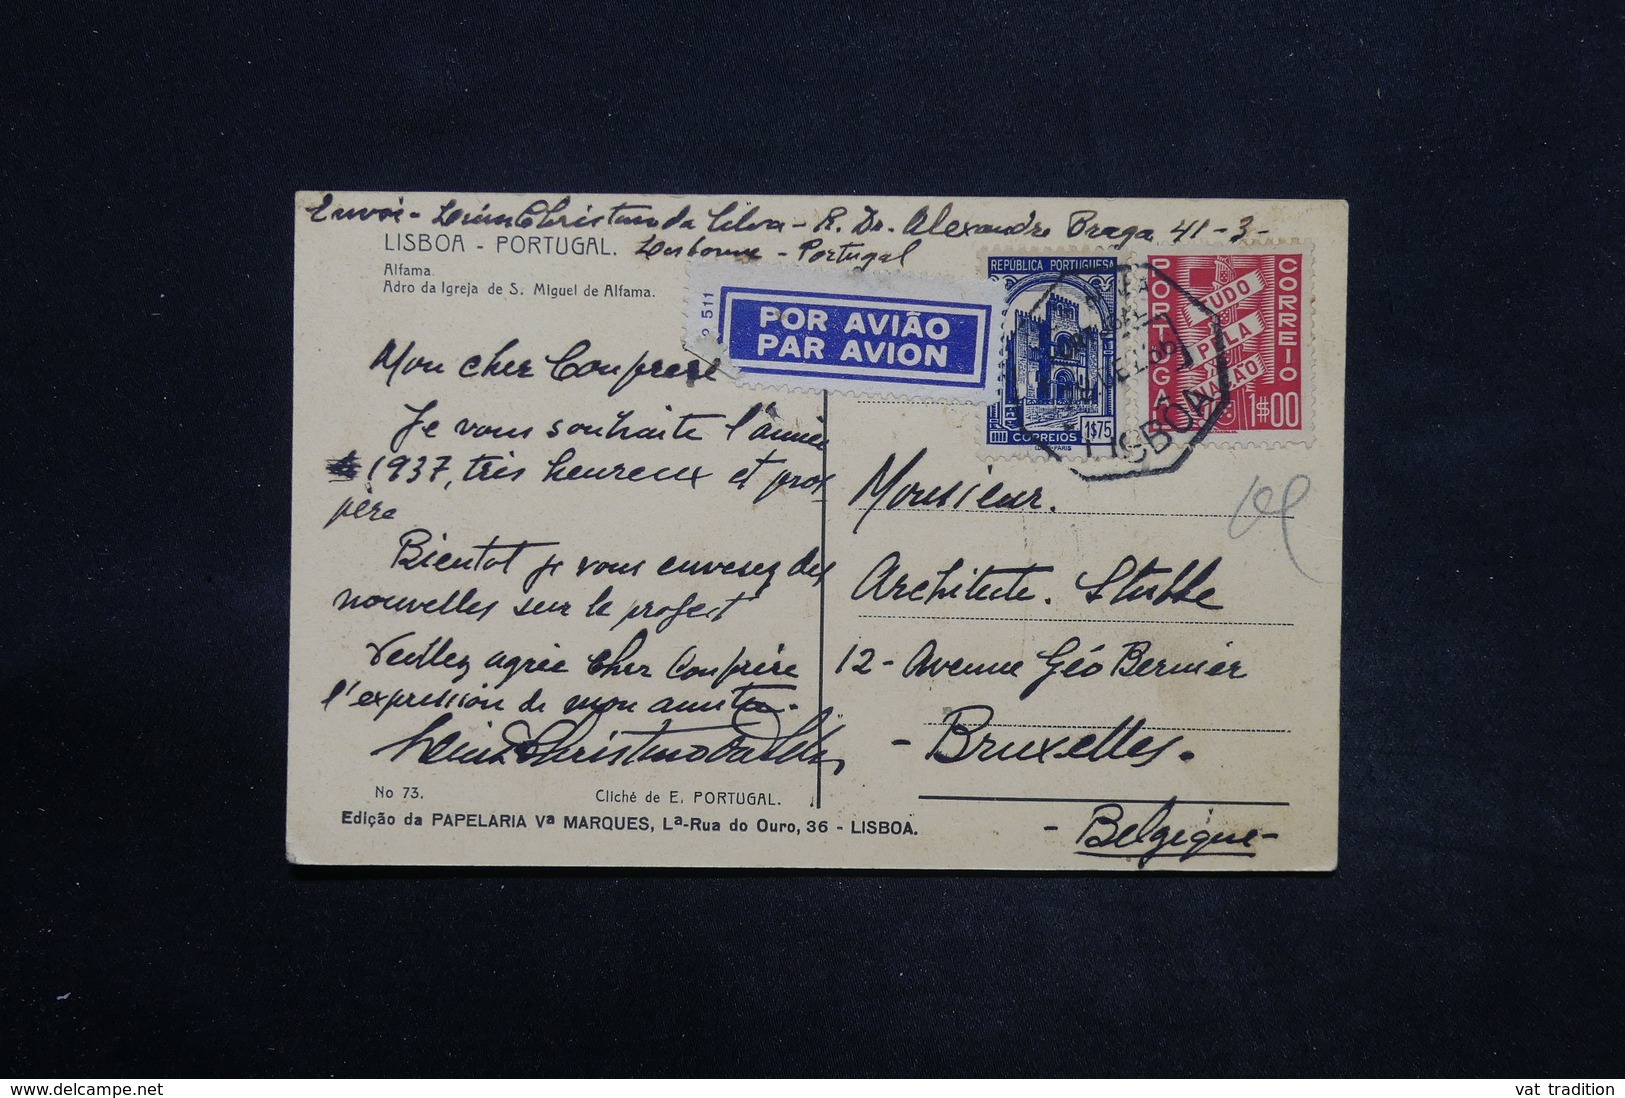 Envoi - Luis Christino da Silva - R. Dr. Alexandre Braga 41-3-
Lisbonne - Portugal
LISBOA - PORTUGAL.
Alfama
Adro da Igreja de S. Miguel de Alfama.
511
POR AVIÃO
PAR AVION
REPÚBLICA PORTUGUESA
CORREIOS 1$75
PORTUGAL
CORREIO
TUDO
PELA
NAÇÃO
1$00
LISBOA
Mon cher Confrere
Je vous souhaite l'année
1937, très heureux et pros
père
Bientot je vous enverez des
nouvelles sur le project
Veillez agrée Cher Confrère
l'expression de mon amitié.
Luis Christino da Silva
Monsieur.
Architecte.
12 - Avenue Géo Bernier
- Bruxelles.
- Belgique -
No 73.
Cliché de E. PORTUGAL.
Edição da PAPELARIA Vª MARQUES, Lª-Rua do Ouro, 36 - LISBOA.
delcampe.net
vat tradition